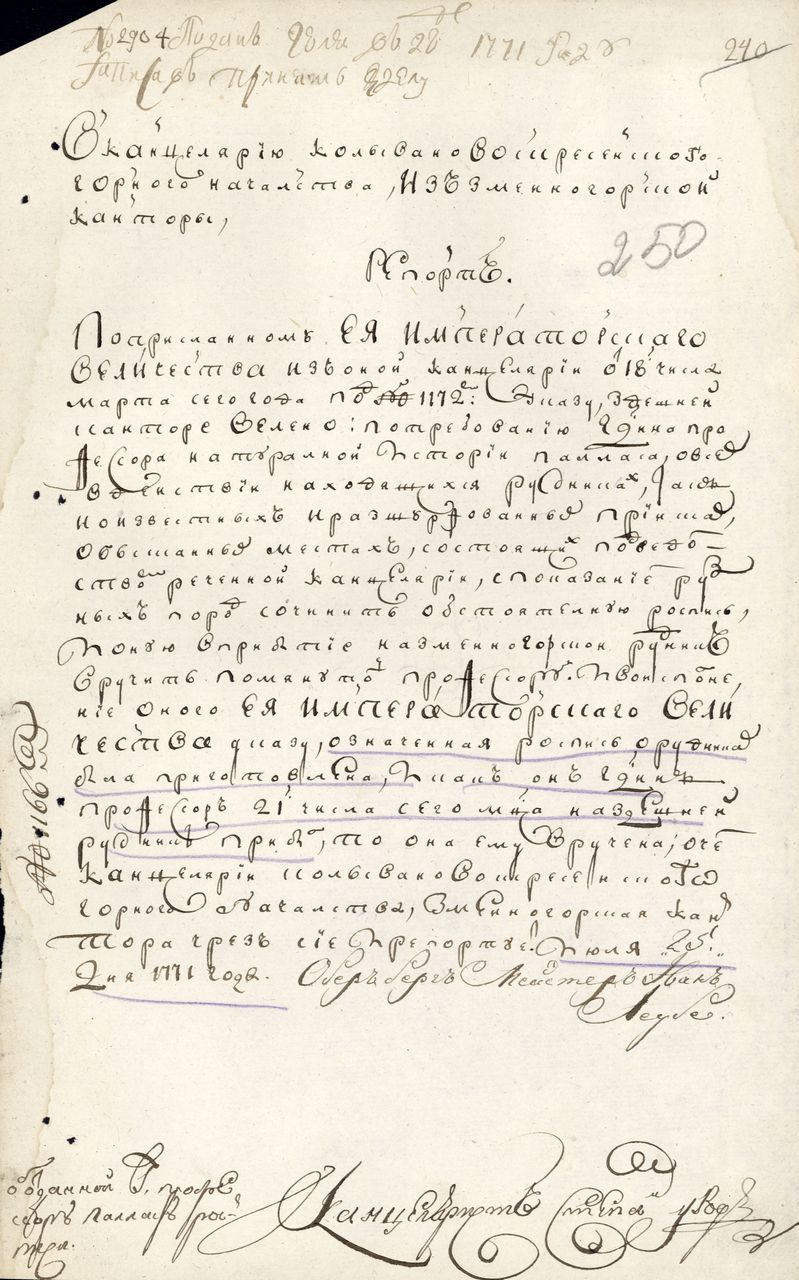 № 2904 Подано Июля въ 28 д 1771 году
Записавъ принять к делу
240
В Канцелярїю Колывановоскресенского
горного началства, изъ Змеиногорской
канторы,
250
Репортъ.
Поприсланному ЕЯ ИМПЕРАТОРСКАГО
ВЕЛИЧЕСТВА изъ оной канцелярїи от 18 числа
марта сего года под № 1172м: указу, здешней
канторе велено: потребованїю Гдина про
фессора натуралной исторїи палласа, овсех
вдействїи находящихся рудниках, также
иоизвестныхъ иразшурфованных прїисках,
обысканных местахъ, состоящих подведом
ством реченной канцелярїи, споказанїем руд
ныхъ пород сочинить обстоятелную роспись,
иконую вприбытие назмеиногорской рудникъ
вручить помянутому профессору. Ивоисполне,
нїе оного ЕЯ ИМПЕРАТОРСКАГО ВЕЛИ
ЧЕСТВА указу, означенная роспись орудниках
была приготовлена, икакъ онъ Гдинъ
профессоръ 21 числа сего мца наздешней
рудникъ прибыл, то она ему вручена; очем
канцелярїи колывановоскресенского
горного началства, Змеиногорская кан
тора чрезъ сїе ирепортует. Июля „25„
дня 1771 года. Оберъ бергъ Мейстеръ Иванъ
Леубе.
№ 1166
отданной Г. профе
ссоръ палласъ рос
Канцеляристъ Степанъ